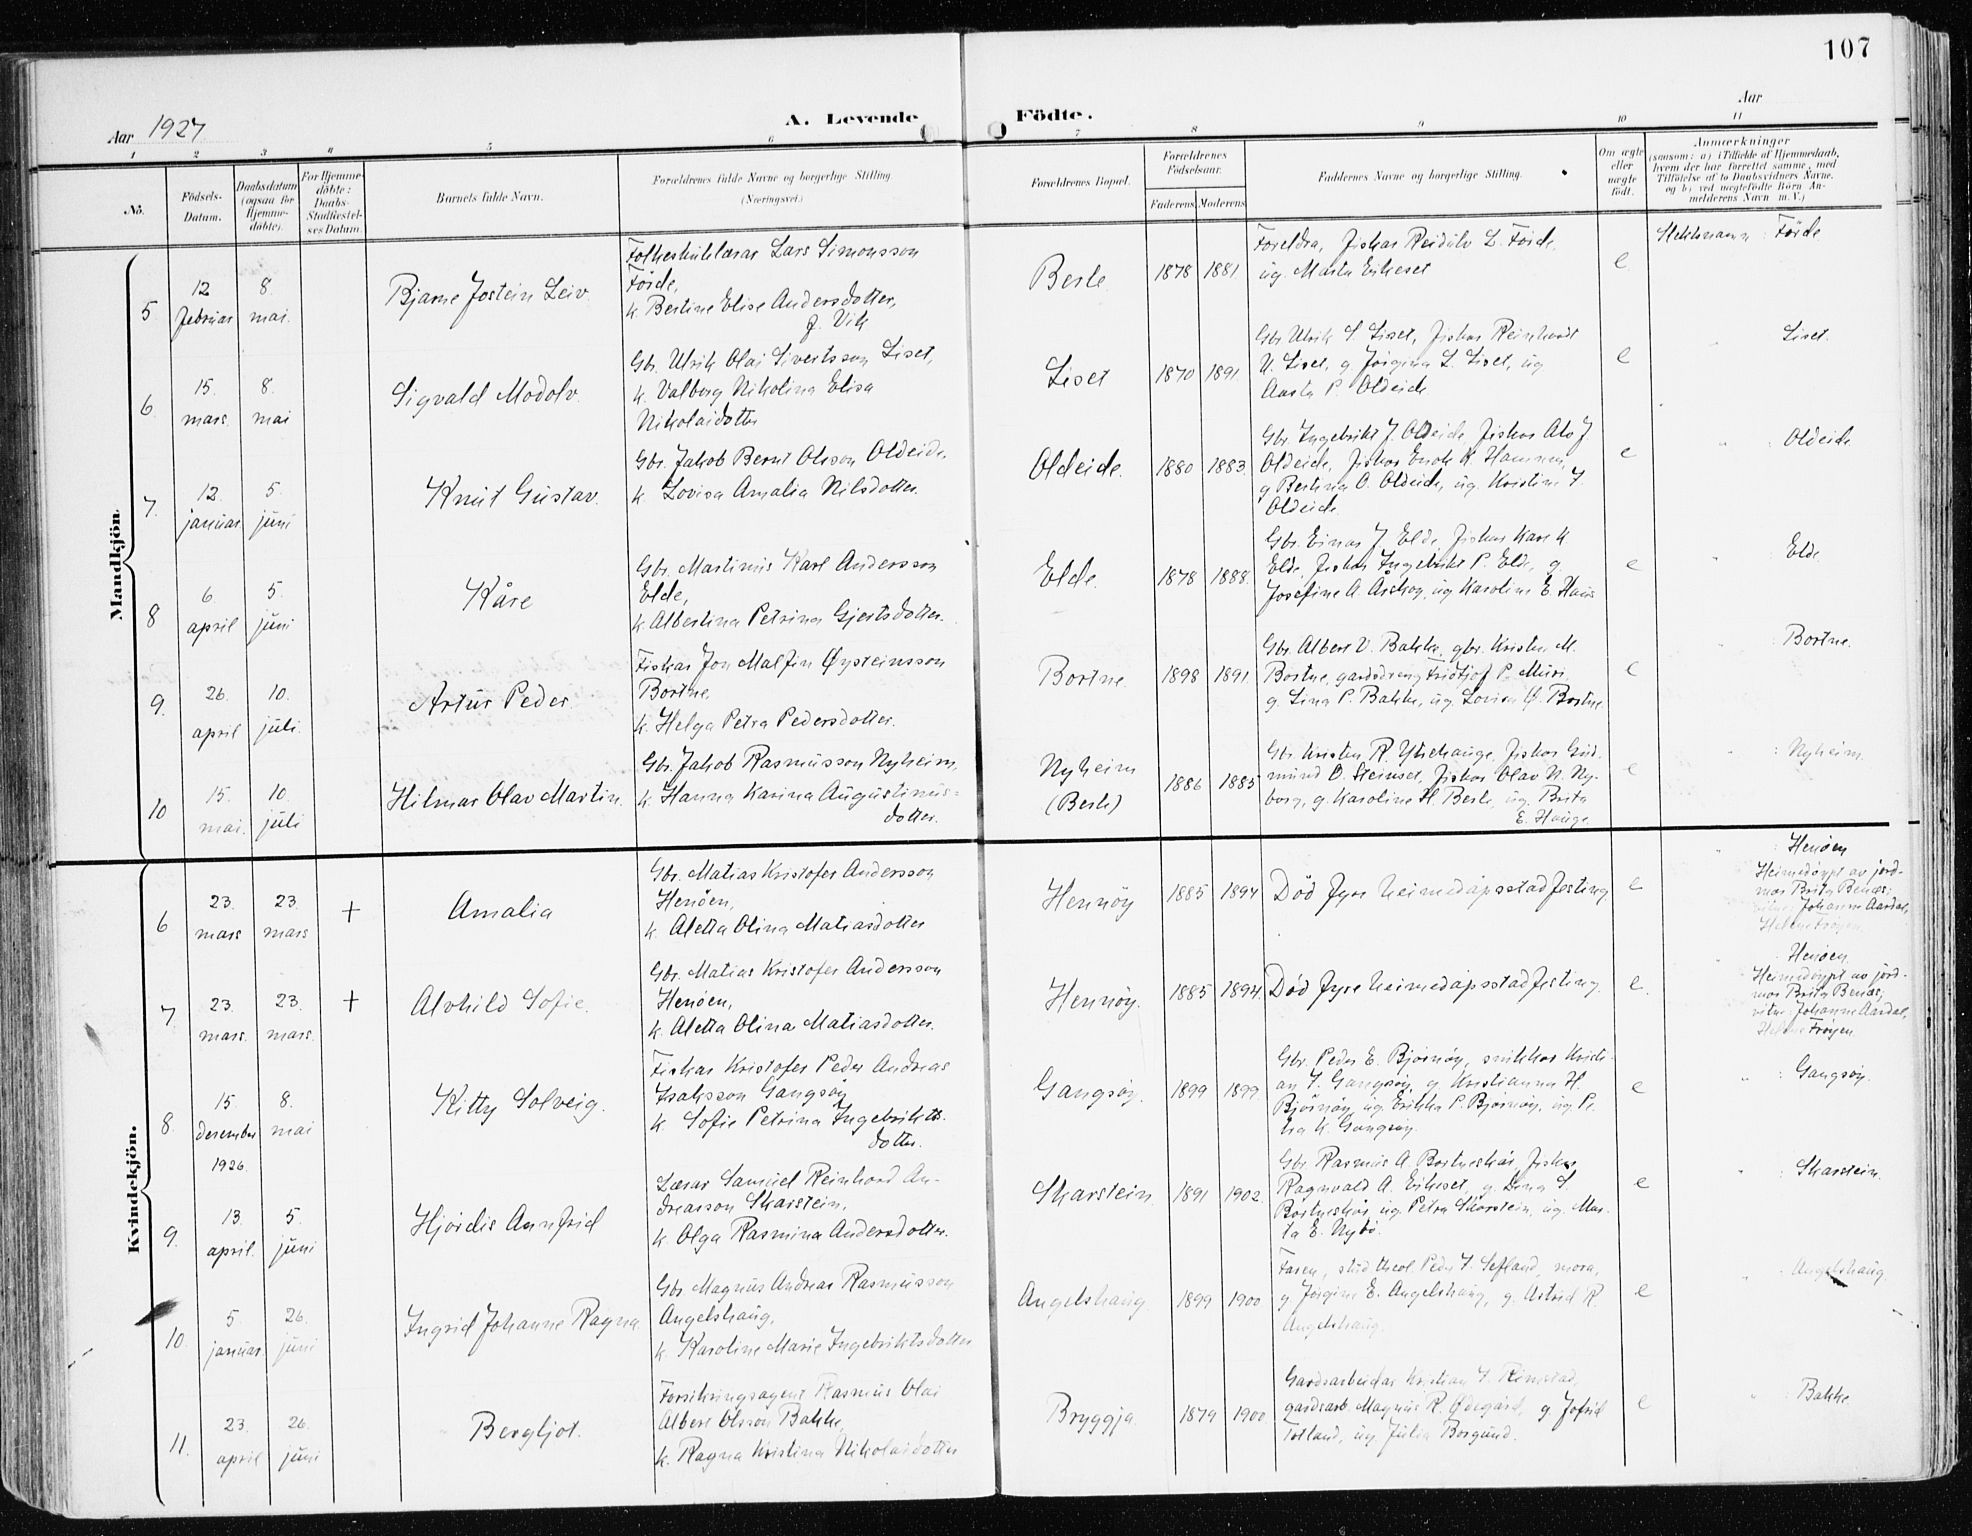 107
Aar 1927
A. Levende Födte.
Aar
1 2 3 4 5 6 7 8 9 10 11
No.
Födsels-Datum.
Daabsdatum (ogsaa for Hjemme-döbte).
For Hjemme-döbte: Daabs-Stadfæstel-ses Datum.
Barnets fulde Navn.
Forældrenes fulde Navne og borgerlige Stilling. (Næringsvei.)
Forældrenes Bopæl.
Forældrenes Födselsaar.
Faderens Moderens
Faddernes Navne og borgerlige Stilling.
Om ægte eller uægte födt.
Anmærkninger
(saasom: a) i Tilfælde af Hjemmedaab,
hvem der har forrettet samme, med
Tilföielse af to Daabsvidners Navne,
og b) ved uægtefödte Börn An-
melderens Navn m. V.)
Mandkjön.
5
12 februar
8. mai.
Bjarne Jostein Leiv.
Folkeskulelærar Lars Simonsson
Førde,
k. Bertine Elise Andersdotter,
f. Vik
Berle.
1878 1881
Foreldra, fiskar Reidulv L. Førde,
ug. Marta Eikeset
e
Førde
6.
15. mars.
8. mai
Sigvald Modolv.
Gbr. Ulrik Olai Sivertsson Liset,
k. Valborg Nikolina Elisa
Nikolaidotter
Liset
1870 1891.
Gbr Ulrik S. Liset, fiskar Reinhardt
U. Liset, g. Jørgina L. Liset, ug
Aasta P. Oldeide.
e
Liset.
7.
12. januar
5. juni
Knut Gustav.
Gbr. Jakob Bernt Olsson Oldeide,
k. Lovisa Amalia Nilsdotter.
Oldeide.
1880 1883.
Gbr. Ingebrikt J. Oldeide, fiskar Alv J
Oldeide, fiskar Enok K. Hammen,
g Bertina O. Oldeide, ug. Kristine J.
Oldeide.
e
Oldeide
8
6 april
5. juni
Kåre
Gbr. Martinus Karl Andersson
Elde,
k. Albertina Petrina Gjertsdotter.
Elde
1878 1888.
Gbr. Einar J. Elde, fiskar Kare K
Elde, fiskar Ingebrikt P. Elde, g
Josefine A. Årskog, ug Karoline E. Haus
e
Elde
9.
26. april
10. juli.
Artur Peder
Fiskar Jon Malfin Øysteinsson
Bortne,
k. Helga Petra Pedersdotter.
Bortne.
1898 1891.
Gbr. Albert V. Bakke, gbr. Kristen M.
Bortne, gardsdreng Fridtjof P. Muri,
g. Lina P. Bakke, ug. Lovisa Ø. Bortne.
e
Bortne.
10
15. mai.
10. juli
Hilmar Olav Martin.
Gbr. Jakob Rasmusson Nyheim,
k. Hanna Karina Augustinus-
dotter.
Nyheim
(Berle)
1886 1885
Gbr. Kristen R. Ytrehauge, fiskar Gud-
mund O. Steinset, fiskar Olav N. Ny-
borg, g. Karoline H. Berle, ug. Brita
E. Hauge.
e
Nyheim.
Kvindekjön.
6
23. mars
23. mars
+
Amalia
Gbr. Matias Kristofer Andersson
Henøen,
k. Aletta Olina Matiasdotter
Hennøy
1885 1894
Død fyre heimedåpsstadfesting
e
Henøen
Heimedøypt av jord-
mor Brita Benæs;
vitne: Johanne Aardal,
Helene Frøyen.
7.
23. mars.
23. mars.
+
Alvhild Sofie.
Gbr. Matias Kristofer Andersson
Henøen,
k. Aletta Olina Matiasdotter.
Hennøy.
1885 1894.
Død fyre heimedåpsstadfesting.
e.
Henøen.
Heimedøypt av jord-
mor Brita Benæs;
vitne: Johanne Aardal,
Helene Frøyen.
8.
15 desember 1926.
8. mai
Kitty Solveig.
Fiskar Kristofer Peder Andreas
Isaksson Gangsøy
k. Sofie Petrina Ingebrikts-
dotter.
Gangsøy.
1899 1899.
Gbr. Peder E. Bjørnøy, snikkar Kristi-
an J. Gangsøy, g. Kristianna H.
Bjørnøy, ug. Erikka P. Bjørnøy, ug Pe-
tra K. Gangsøy.
e
Gangsøy.
9.
13. april.
5. juni
Hjørdis Annfrid
Lærar Samuel Reinhard An-
dreasson Skarstein,
k. Olga Rasmina Andersdotter.
Skarstein.
1891 1902.
Gbr. Rasmus A. Bortneskår, fiskar
Ragnvald A. Eikeset, g. Dina S.
Bortneskår, ug. Petra Skarstein, ug. Mar-
ta E. Nybø.
e
Skarstein.
10.
5. januar
26. juni
Ingrid Johanne Ragna.
Gbr Magnus Andreas Rasmusson
Angelshaug,
k. Karoline Marie Ingebriktsdotter
Angelshaug.
1899 1900
Faren, stud. theol Peder J. Sefland, mora,
g Jørgine E. Angelshaug, g. Astrid R.
Angelshaug.
e
Angelshaug.
11.
23. april
26. juni
Bergljot.
Forsikringsagent Rasmus Olai
Albert Olsson Bakke,
k. Ragna Kristina Nikolaidotter
Bryggja.
1879 1900.
Gardsarbeidar Kristian J. Rimstad,
gardsarb. Magnus R. Ødegård, g. Jofrid
Totland, ug. Julia Borgund.
e
Bakke.